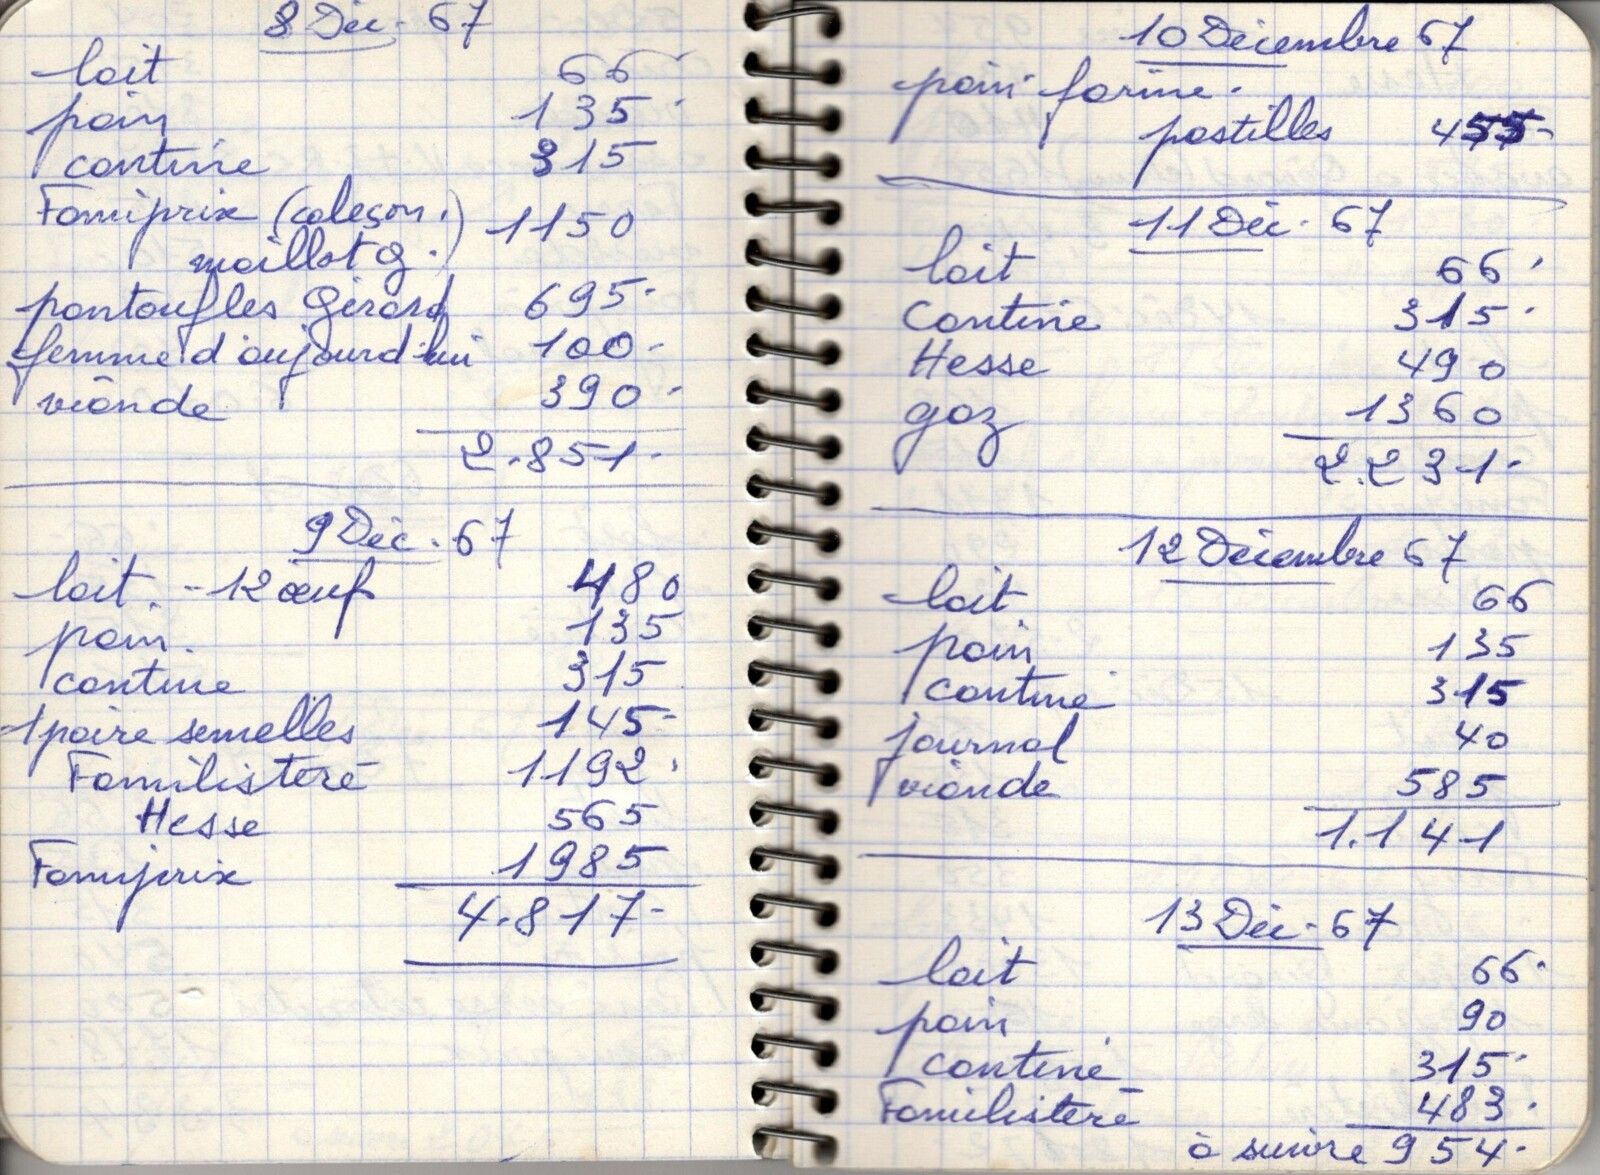 8 Déc. 67
lait 66
pain 135
cantine 315
Famiprix (caleçon. 1150
maillot g.)
pantoufles Gérard 695
femme d'aujourd'hui 100
viande 390
2.851
9 Déc. 67
lait. - 12 œuf 480
pain. 135
cantine 315
1 paire semelles 145
Familistère 1192
Hesse 565
Famiprix 1985
4.817
10 Décembre 67
pain farine.
pastilles 455
11 Déc. 67
lait 66
Cantine 315
Hesse 490
gaz 1360
2.231
12 Décembre 67
lait 66
pain 135
cantine 315
journal 40
viande 585
1.141
13 Déc. 67
lait 66
pain 90
cantine 315
Familistère 483
à suivre 954